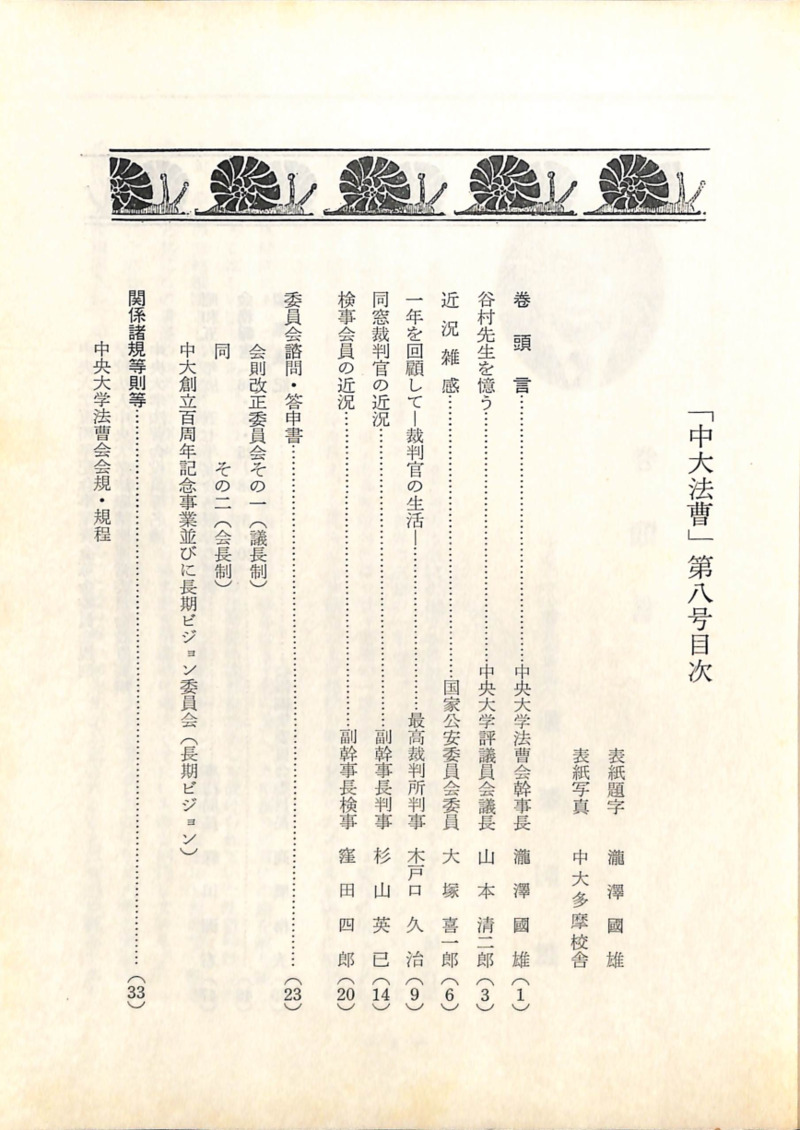 「中大法曹」第八号目次
表紙題字　瀧澤國雄
表紙写真　中大多摩校舎
巻頭言……中央大学法曹会幹事長　瀧澤國雄（1）
谷村先生を憶う……中央大学評議員会議長　山本清二郎（3）
近況雑感……国家公安委員会委員　大塚喜一郎（6）
一年を回顧して―裁判官の生活―……最高裁判所判事　木戸口久治（9）
同窓裁判官の近況……副幹事長判事　杉山英巳（14）
検事会員の近況……副幹事長検事　窪田四郎（20）
委員会諮問・答申書……（23）
会則改正委員会その一（議長制）
同　その二（会長制）
中大創立百周年記念事業並びに長期ビジョン委員会（長期ビジョン）
関係諸規等則等……（33）
中央大学法曹会会規・規程